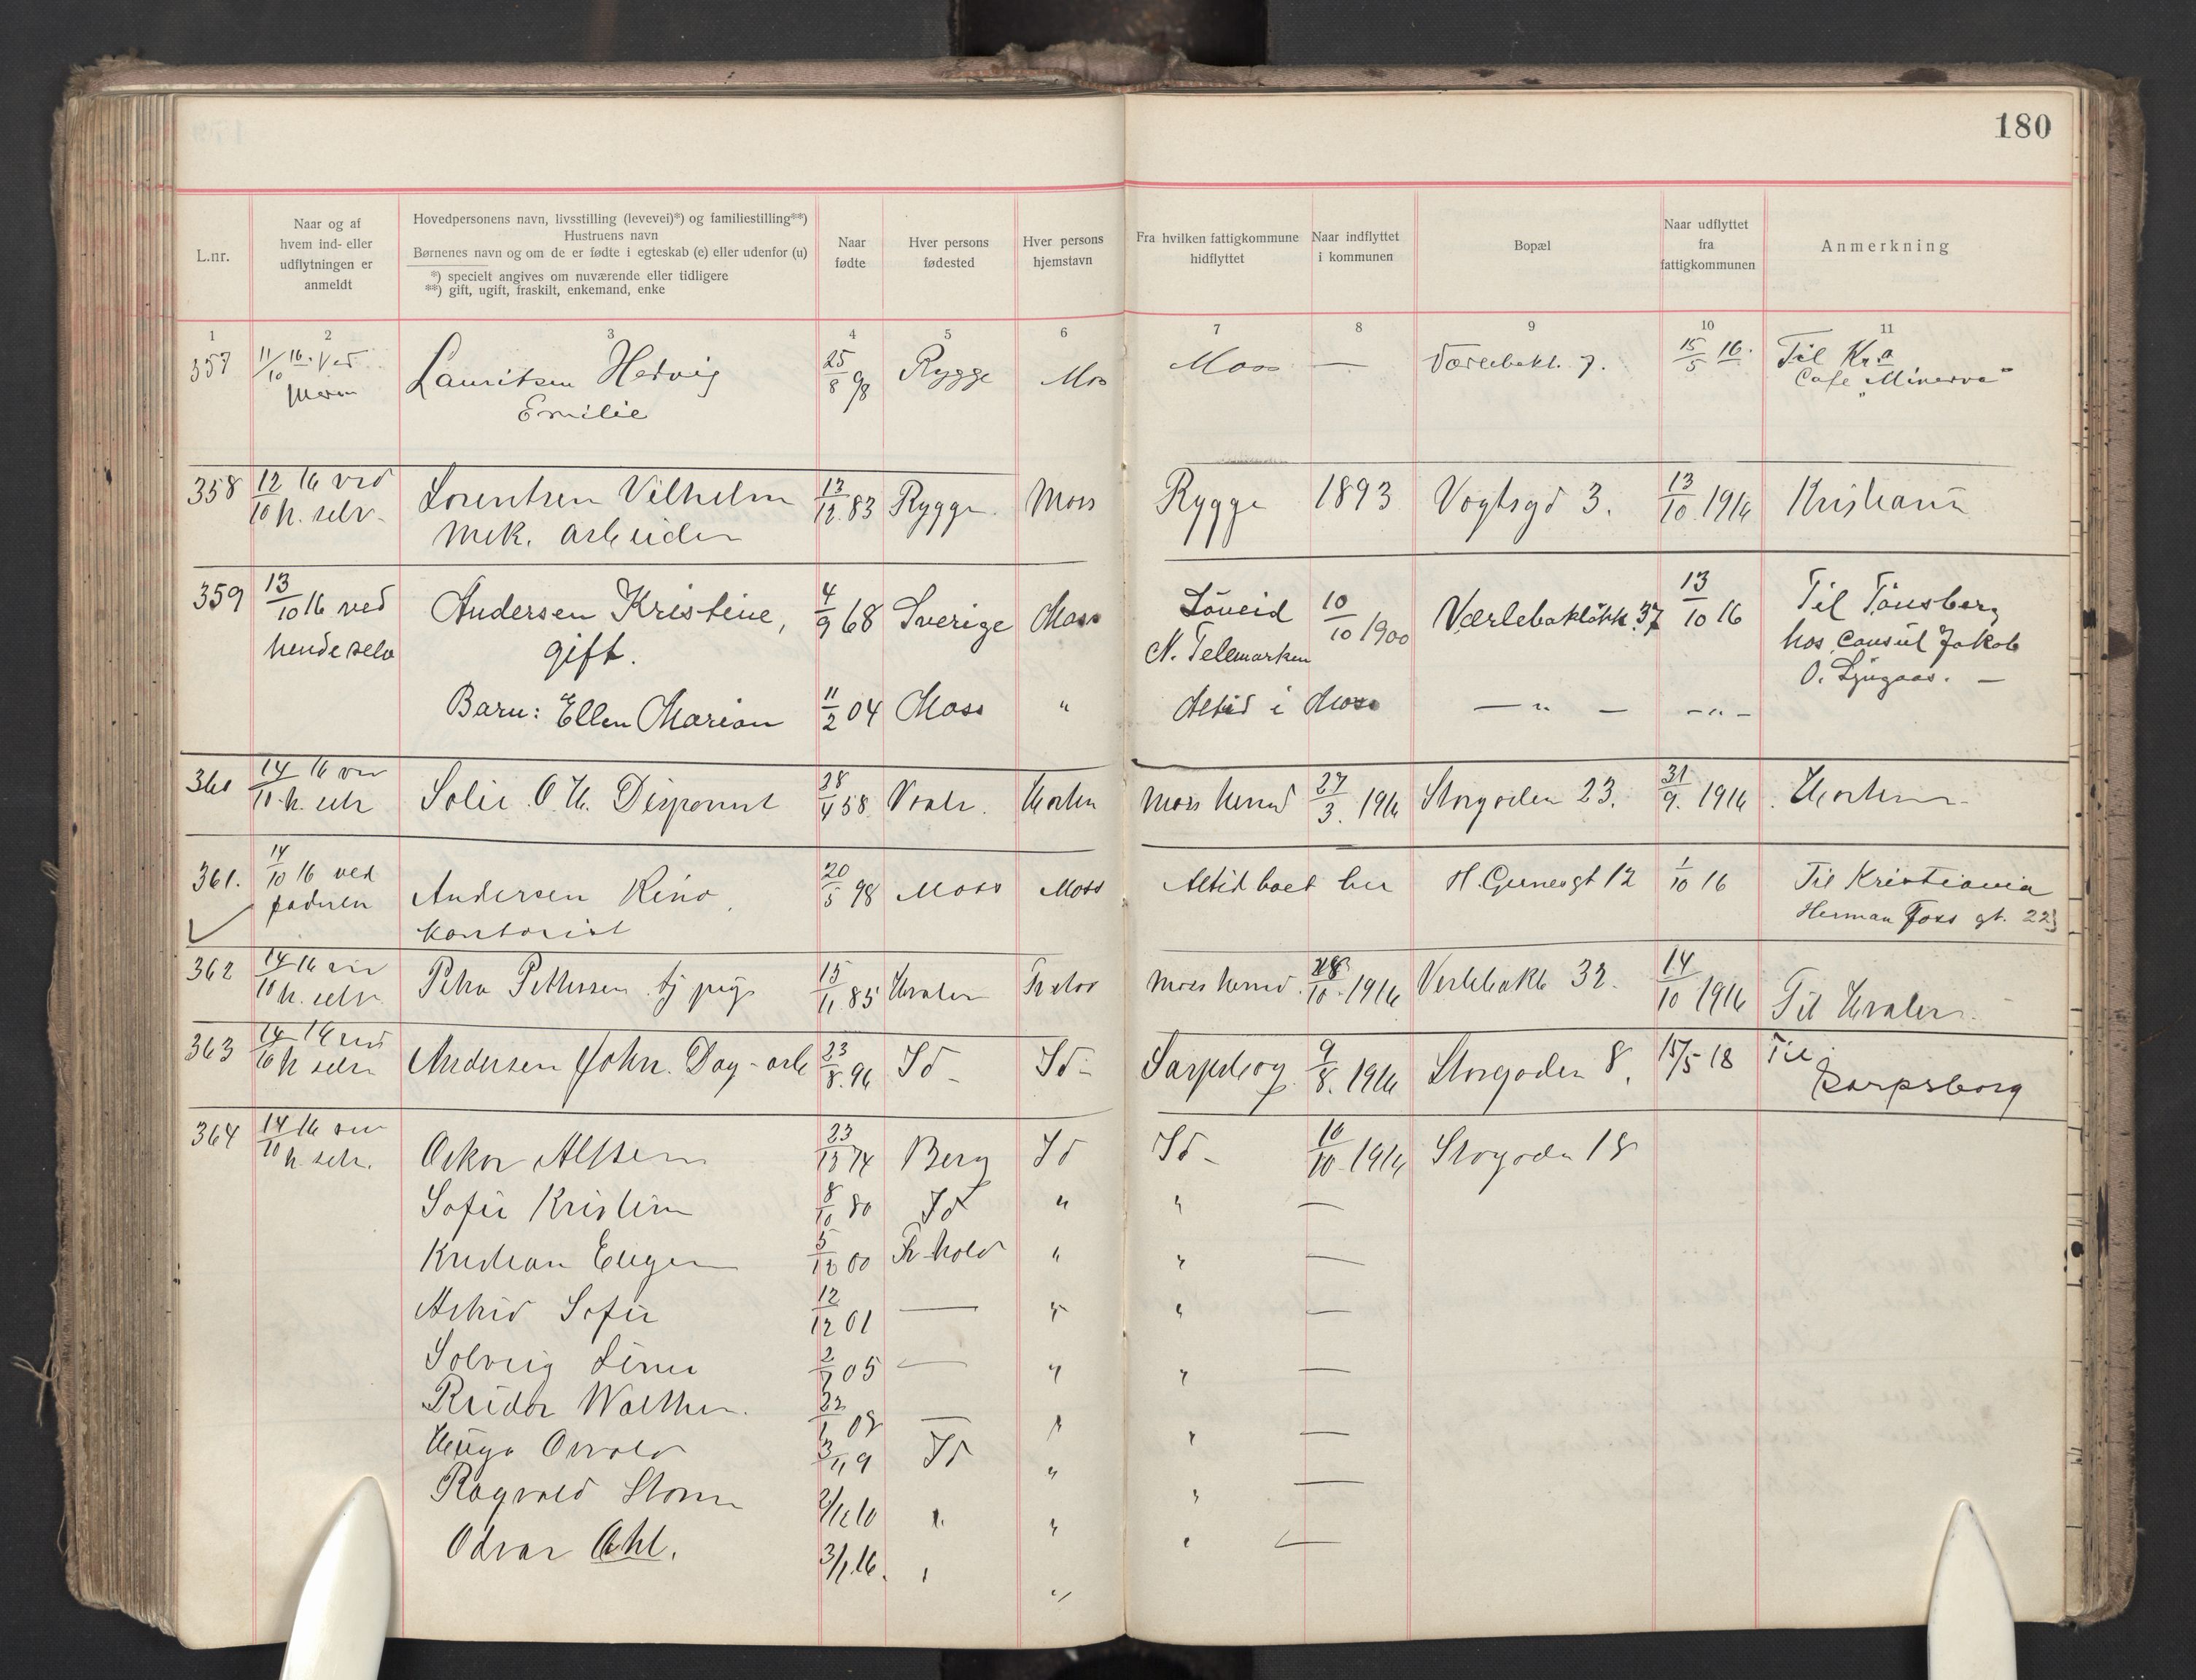 180
L.nr.
Naar og af
hvem ind- eller
udflytningen er
anmeldt
Hovedpersonens navn, livsstilling (levevei)*) og familiestilling**)
Hustruens navn
Børnenes navn og om de er fødte i egteskab (e) eller udenfor (u)
*) specielt angives om nuværende eller tidligere
**) gift, ugift, fraskilt, enkemand, enke
Naar
fødte
Hver persons
fødested
Hver persons
hjemstavn
Fra hvilken fattigkommune
hidflyttet
Naar indflyttet
i kommunen
Bopæl
Naar udflyttet
fra
fattigkommunen
Anmerkning
1 2 3 4 5 6 7 8 9 10 11
357 11/10 16. Ved Lauritsen Hedvig 25/8 98 Rygge Mos Moss — 7. 15/5 16. Til Kr.a
Emilie Cafe „Minerva"
358 12/10 16 ved Lorentsen Vilhelm 13/12 83 Rygge. Moss Rygge 1893 Vogtsgd 3. 13/10 1916 Kristiania
h. selv. mek. arbeider
359 13/10 16 ved Andersen Kristine, 4/9 68 Sverige Moss Löveid 10/10 1900 Værlebaklökk. 37 13/10 16 Til Tönsberg
hende selv gift. N. Telemarken hos Consul Jakob
Barn: Ellen Marion 11/2 04 Moss " Altid i Moss — " — - " - O. —
360 14/10 16 h. selv Solie O. Disponent 28/4 58 27/3. 1916 Storgaden 23. 31/9. 1916
361. 14/10 16 ved Andersen 20/5 98 Moss Moss Altid boet her H. Gernesgt 12 1/10 16 Til Kristiania
faderen Kontorist Herman Foss gt. 22
362 14/10 16 h. selv Petra Pettersen tj pige 15/11 85 10. 1916 32. 14/10 1916 Til
363 14/10 16 ved Andersen John. Dag-arb 23/8. 96 Id - Id - Sarpsborg 9/8. 1916 Storgaden 8. 15/5 18 Til
h selv Sarpsborg
364 14/10 16 h. selv. Oskar 23/12 74 Berg Id Id - 10/10. 1916 Storgaden 18
Sofie Kristine 8/10 80 Id " " —
Kristian Eugen 5/12 00 Fr.hald " " —
Astrid Sofie 12/12 01 — " " —
Solveig 05 — " " —
Reidar Walther. — " " —
Hugo Osvald Id " " —
Ragvald Storm " " " —
Odvar 3/1.16. " " " —